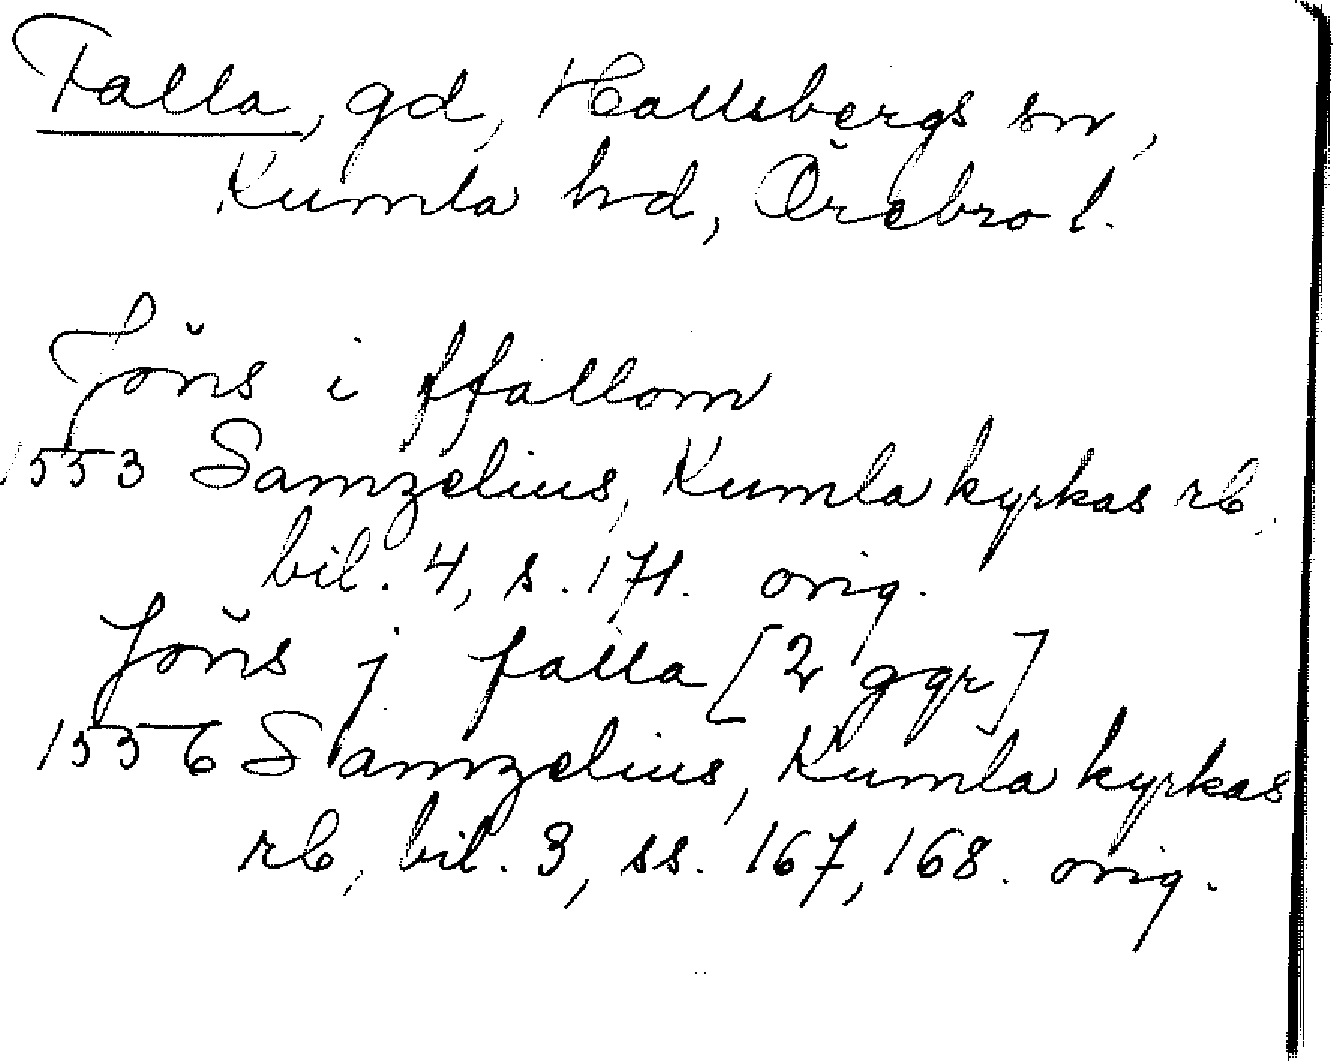 Falla, gd, Hallsbergs sn,
Kumla hd, Örebro l.
Jöns i ffallom
1553 Samzelius, Kumla kyrkas rb,
bil. 4, s. 171. orig.
Jöns j falla [2 ggr]
1556 Samzelius, Kumla kyrkas
rb, bil. 3, ss. 167, 168. orig.